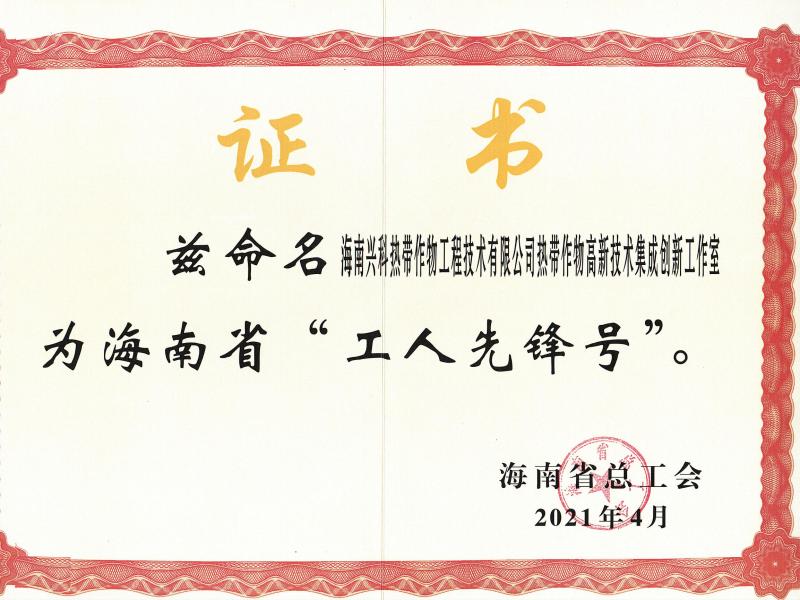 证书
兹命名海南兴科热带作物工程技术有限公司热带作物高新技术集成创新工作室
为海南省“工人先锋号”。
海南省总工会
2021年4月